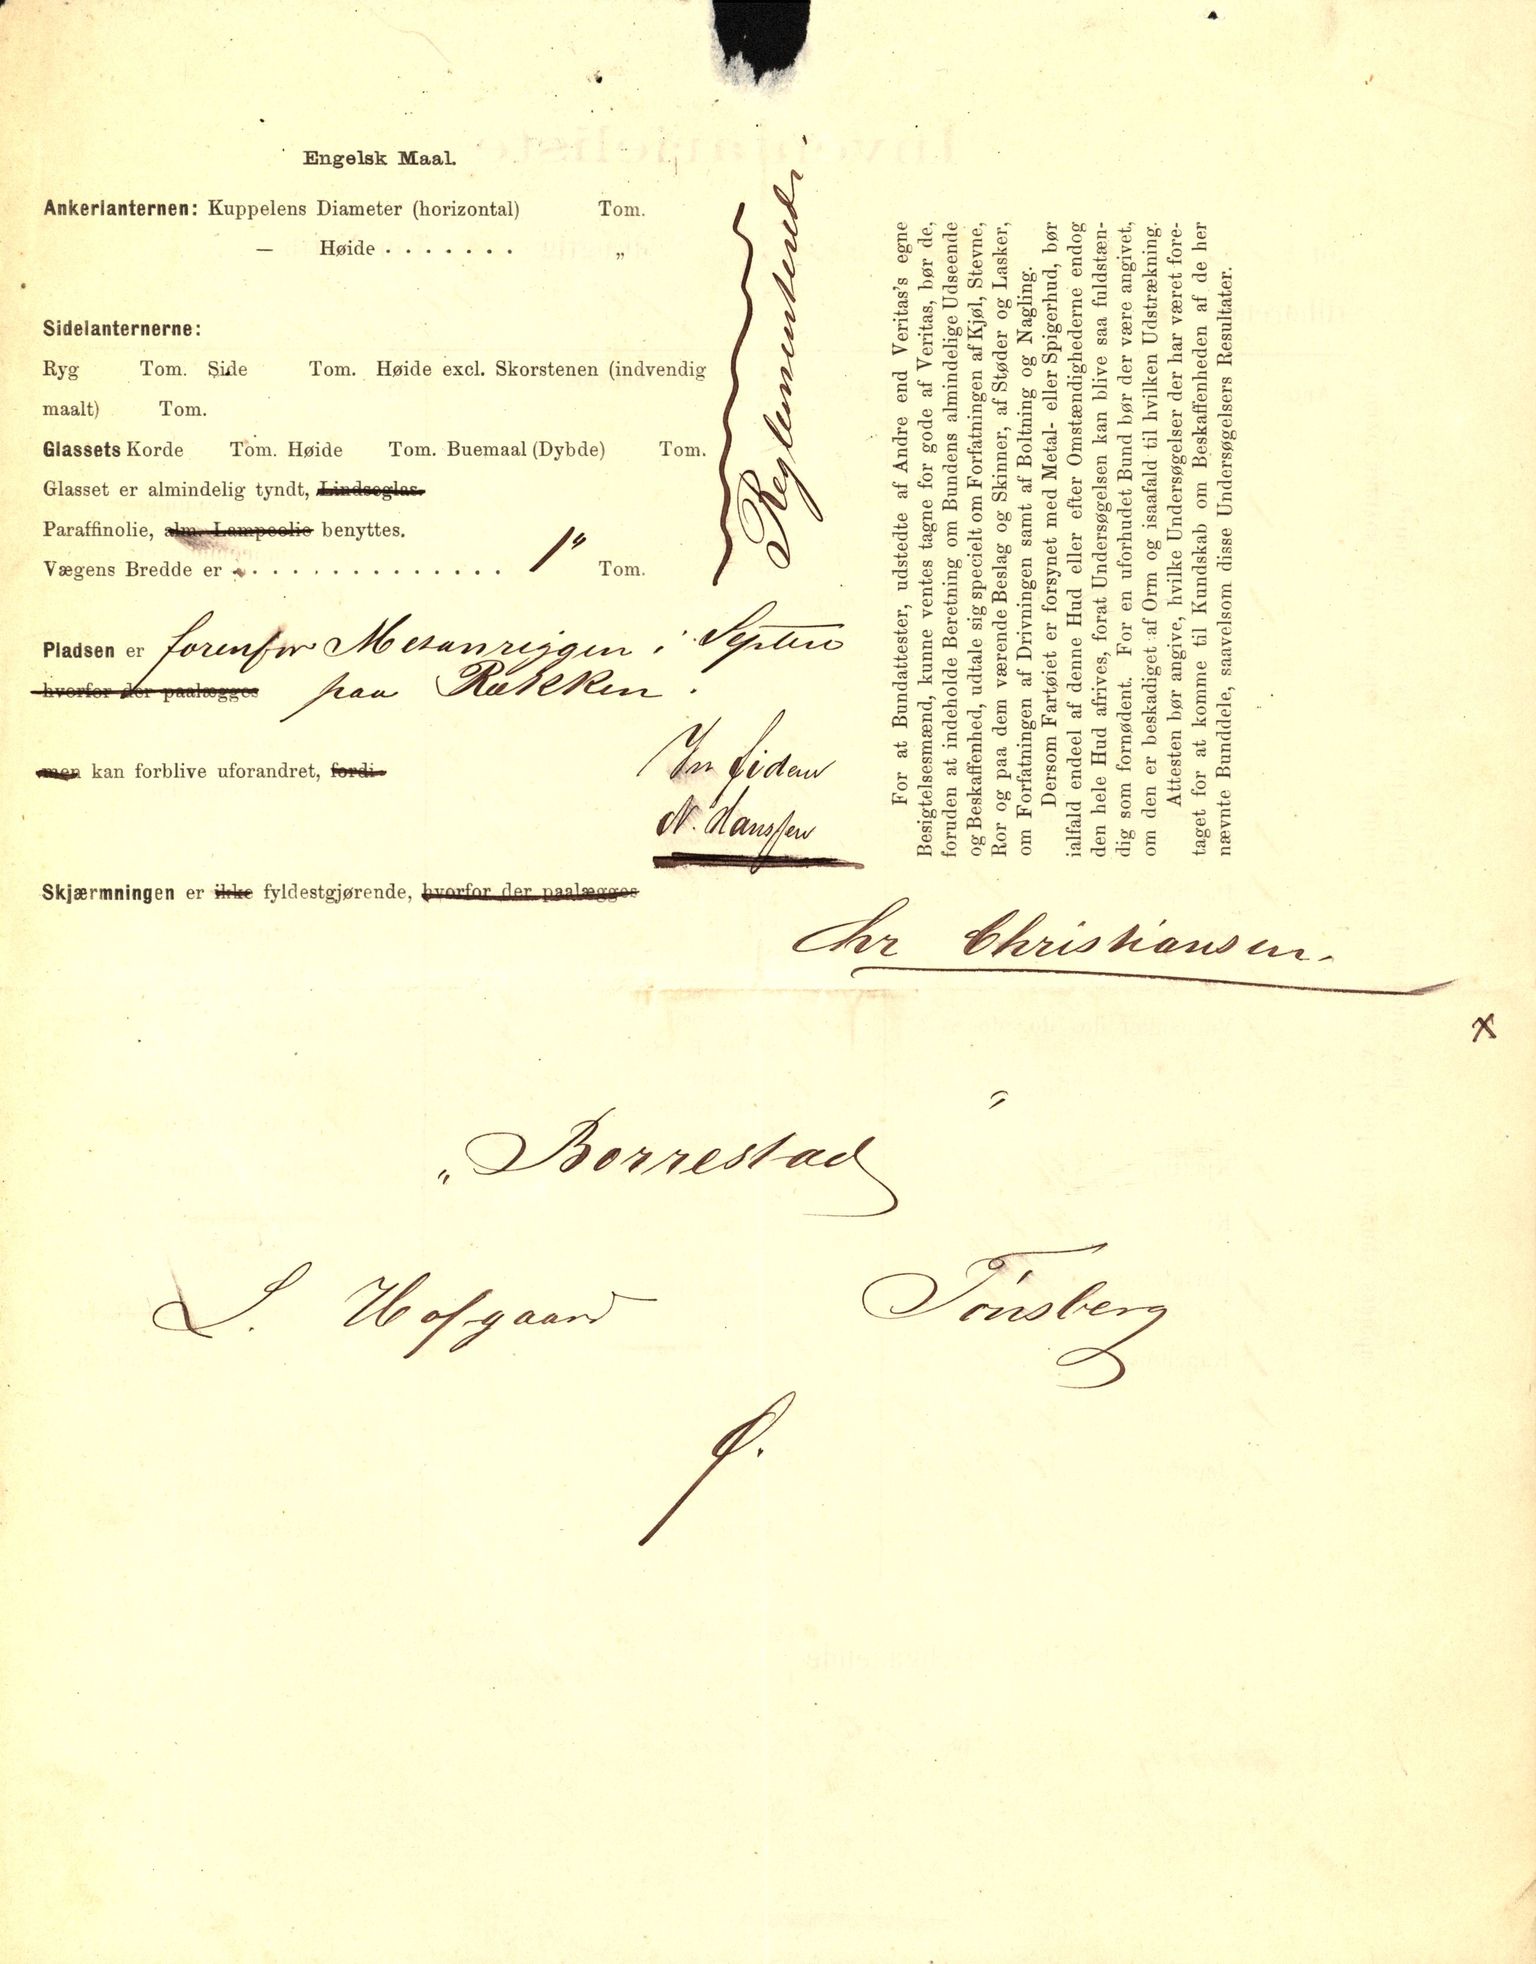 Engelsk Maal.
Ankerlanternen: Kuppelens Diameter (horizontal) Tom.
— Høide . . . . . . . „
Sidelanternerne:
Ryg Tom. Side Tom. Høide excl. Skorstenen (indvendig
maalt) Tom.
Glassets Korde Tom. Høide Tom. Buemaal (Dybde) Tom.
Glasset er almindelig tyndt, Lindseglas.
Paraffinolie, alm. Lampeolie benyttes.
Vægens Bredde er . . . . . . . . . . . . . . 1" Tom.
Reglementeret
Pladsen er forenfor Mesanriggen i
hvorfor der paalægges paa Rækken.
men kan forblive uforandret, fordi
N. Hanssen
Skjærmningen er ikke fyldestgjørende, hvorfor der paalægges
For at Bundattester, udstedte af Andre end Veritas's egne
Besigtelsesmænd, kunne ventes tagne for gode af Veritas, bør de,
foruden at indeholde Beretning om Bundens almindelige Udseende
og Beskaffenhed, udtale sig specielt om Forfatningen af Kjøl, Stevne,
Ror og paa dem værende Beslag og Skinner, af Støder og Lasker,
om Forfatningen af Drivningen samt af Boltning og Nagling.
Dersom Fartøiet er forsynet med Metal- eller Spigerhud, bør
ialfald endeel af denne Hud eller efter Omstændighederne endog
den hele Hud afrives, forat Undersøgelsen kan blive saa fuldstæn-
dig som fornødent. For en uforhudet Bund bør der være angivet,
om den er beskadiget af Orm og isaafald til hvilken Udstrækning.
Attesten bør angive, hvilke Undersøgelser der har været fore-
taget for at komme til Kundskab om Beskaffenheden af de her
nævnte Bunddele, saavelsom disse Undersøgelsers Resultater.
Chr Christiansen.
x
„Borrestad"
S. Hofgaard Tønsberg
Ø.